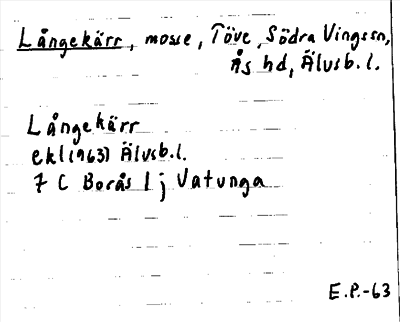 Långekärr, mosse, Töve, Södra Vingssn,
Ås hd, Älvsb.l.
Långekärr
ekl(1963) Älvsb.l.
7 C Borås 1 j Vatunga
E.P.-63